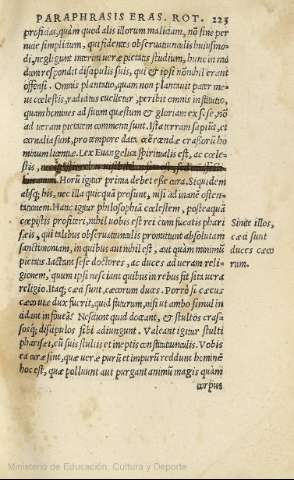 PARAPHRASIS ERAS. ROT. 223
proficias, quàm quod alis illorum malitiam, nõ sine per
nicie simplicium, qui fidentes obseruatiunculis huiusmo
di, negligunt interim uerae pietatis studium, hunc in mo
dum respondit discipulis suis, qui & ipsi nõnihil erant
offensi. Omnis plantatio, quam non plantauit pater me
us coelestis, radicitus euelletur, peribit omnis institutio,
quam homines ad suum quaestum & gloriam ex se, nõ
ad ueram pietatem commenti sunt. Ista terram sapiũt, et
carnalia sunt, pro tempore data coërcendae crassorũ ho
minum licentiae. Lex Euangelica spiritualis est, ac coele
stis,
Horũ igitur prima debet esse cura. Si quidem
absq; his, nec illa quicquã prosunt, nisi ad inanẽ osten
tationem. Hanc igitur philosophiã coelestem, posteaquã
coepistis profiteri, nihil uobis est rei cum fucatis phari
saeis, qui talibus obseruatiunculis promittunt absolutam
sanctimoniam, in quibus aut nihil est, aut quàm minimũ
pietatis. Iactant sese doctores, ac duces ad ueram reli-
gionem, quum ipsi nesciant quibus in rebus sit sita uera
religio. Itaq; caeci sunt, caecorum duces. Porrò si caecus
caeco uiae dux fuerit, quid futurum, nisi ut ambo simul in
cidant in foueã? Nesciunt quod docent, & stultos crass
sosq; discipulos sibi adiungunt. Valeant igitur stulti
pharisaei, cũ suis stultis et ineptis constitutiunculis. Vobis
ea curae sint, quae uerè purũ et impurũ reddunt hominẽ
hoc est, quae polluunt aut purgant animũ magis quàm
corpus
Sinite illos,
caeci sunt
duces caeco
rum.
Ministerio de Educación, Cultura y Deporte